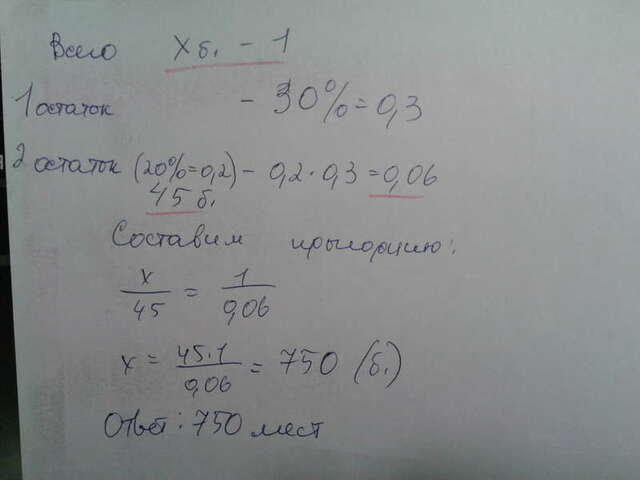 Всего Хб. - 1
1 остаток - 30% = 0,3
2 остаток (20%=0,2) - 0,2 · 0,3 = 0,06
45 б.
Составим прыпорцию:
x/45 = 1/0,06
x = 45·1/0,06 = 750 (б.)
Ответ: 750 мест